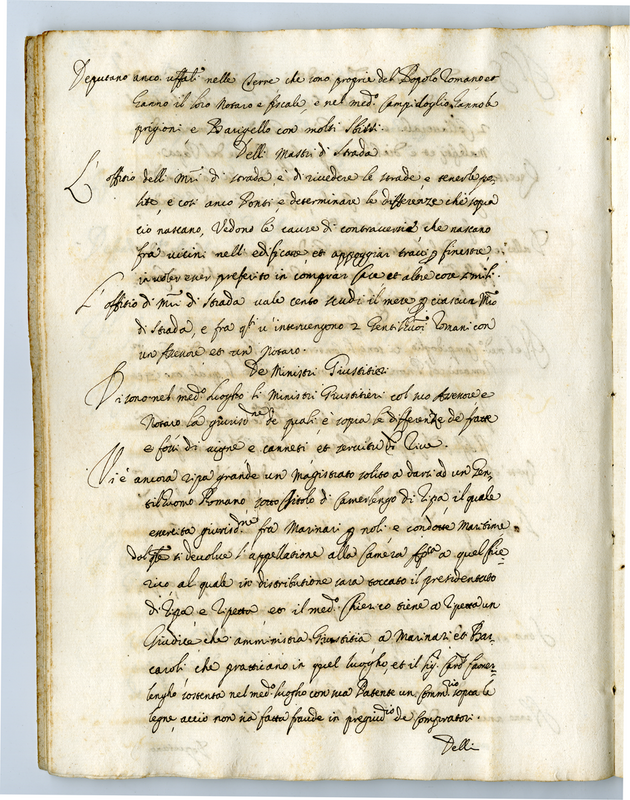 Deputano anco uffiti nelle Terre che sono proprie del Popolo Romano et
hanno il loro Notaro e fiscale, e nel med.º Campidoglio hanno le
prigioni e Barigello con molti Sbirri.
Delli Mastri di Strada
L'offitio delli Mri di strada, è di rivedere le strade, e tenerle po-
lite, e così anco Ponti e determinare le differenze che sopra
ciò nascano, Vedono le cause di controversie che nascano
frà vicini nell'edificare et appoggiar travi, e finestre,
in voler esser preferito in comprar case et altre cose simili.
L'offitio di Mri di Strada vale cento scudi il mese p ciascun Mro
di Strada, e fra qsti v'intervengono 2 Gentilhuoi Romani con
un Asesore et un Notaro.
De Ministri Giustitieri
Vi sono nel med.º luogho li Ministri Giustitieri col suo Asesore e
Notaro la giurisdne de quali è sopra le differenze de fratte
e fossi di vigne e canneti et servitù di Vive.
Vi è ancora ripa grande un Magistrato solito a darsi ad un Gen-
tilhuomo Romano sotto titolo di Camerlengo di Ripa, il quale
esercita giurisdne fra Marinari p noli e condotte Maritime
dal qle si devolve l'appellatione alla Camera Apca a quel Chie-
rico al quale in distributione sarà toccato il presidentato
di Ripa e Ripetta et il med.º Chierico tiene a Ripetta un
Giudice, che amministra Giustitia a Marinari et Bar-
caroli che pratticano in quel luogho, et il Sig. Card. Camer-
lengho sostenta nel med.º luogho con sua Patente un Commrio sopra le
legne, acciò non sia fatta fraude in pregiudio de Compratori.
Delli